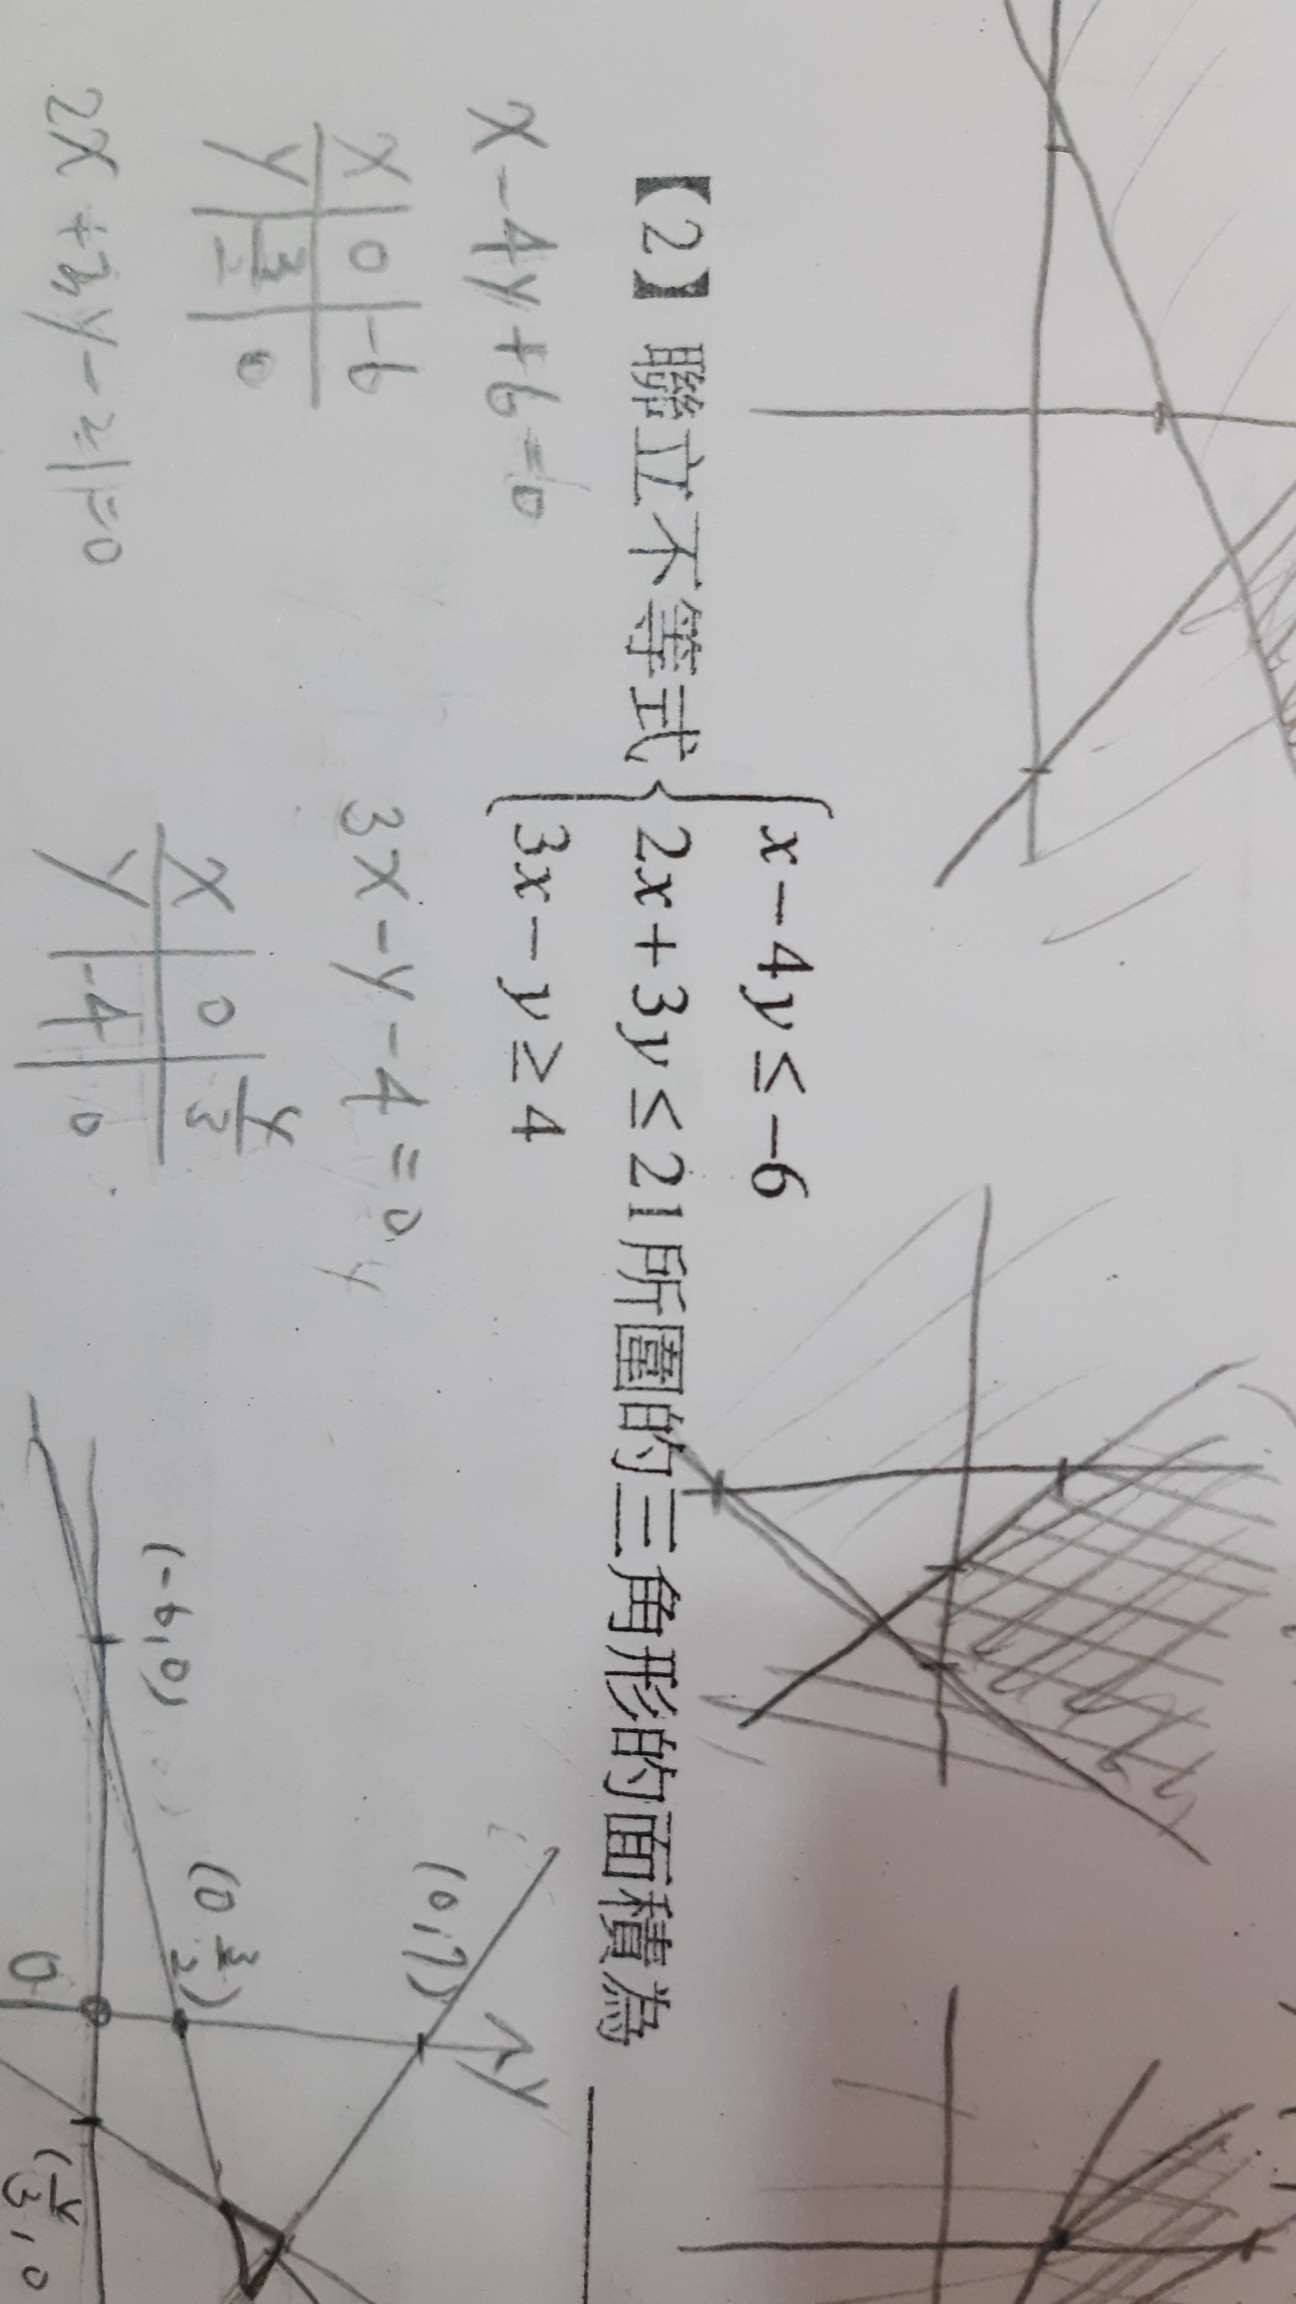 x－4y≤－6
【2】聯立不等式 2x＋3y≤21所圍的三角形的面積為
3x－y≥4
x－4y＋6＝0
x 0 －6
y 3/2 0
2x＋3y－21＝0
3x－y－4＝0
x 0 4/3
y －4 0
y
(－6,0)
(0 3/2)
(0,7)
y
0
(4/3, 0